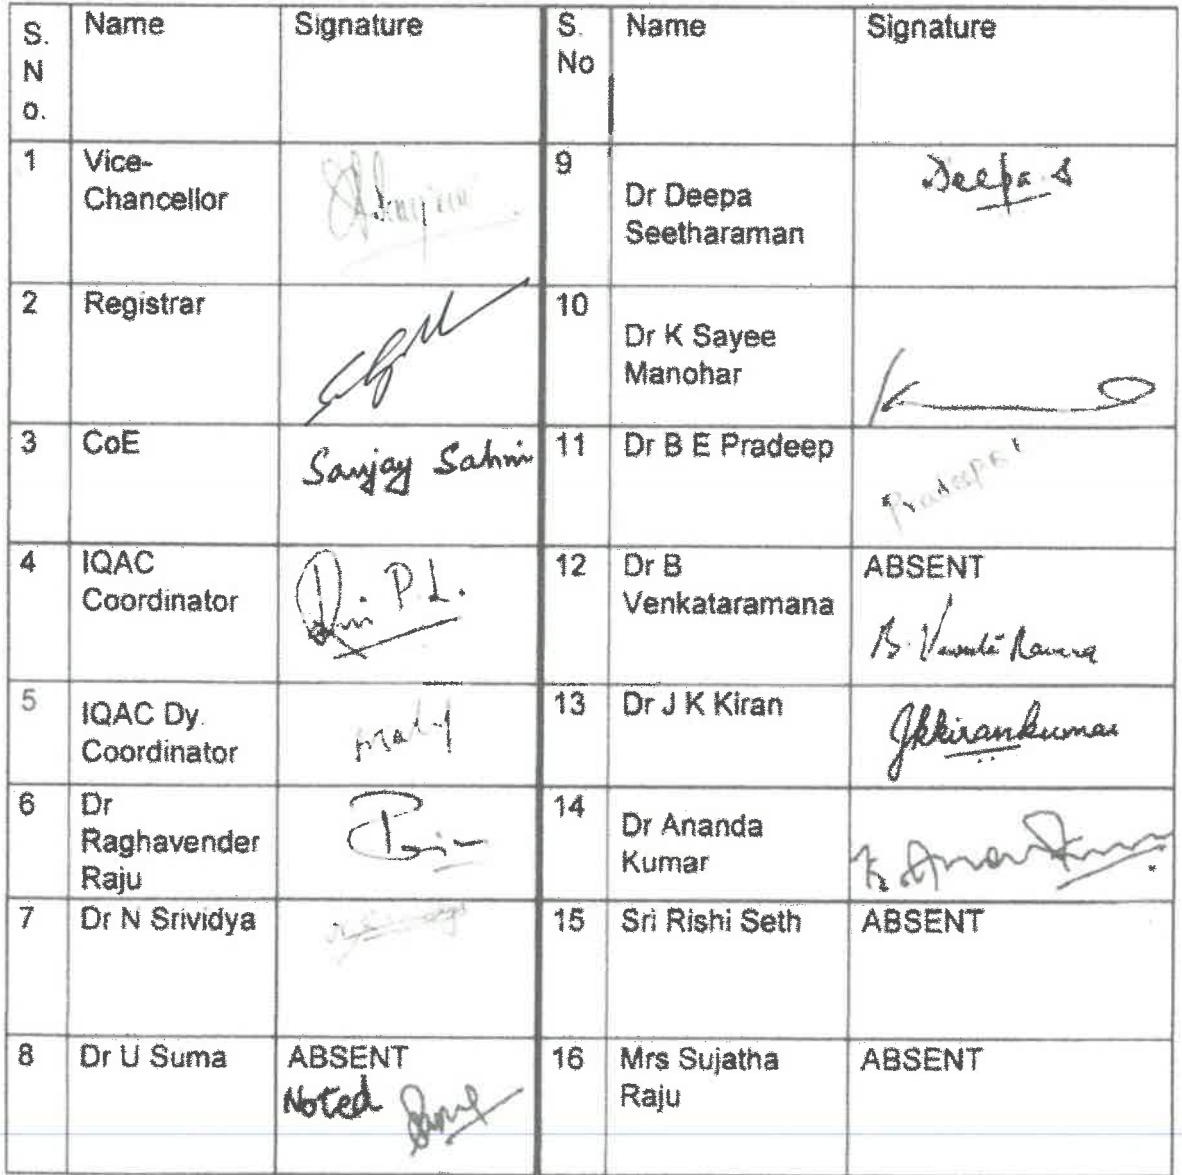 S.
N
o.
Name
Signature
S.
No
Name
Signature
1
Vice-
Chancellor
9
Dr Deepa
Seetharaman
Deepa. S
2
Registrar
10
Dr K Sayee
Manohar
3
CoE
Sanjay Sahni
11
Dr B E Pradeep
Pradeep B E
4
IQAC
Coordinator
P.L.
12
Dr B
Venkataramana
ABSENT
5
IQAC Dy.
Coordinator
13
Dr J K Kiran
Jkkirankumar
6
Dr
Raghavender
Raju
14
Dr Ananda
Kumar
7
Dr N Srividya
15
Sri Rishi Seth
ABSENT
8
Dr U Suma
ABSENT
Noted
16
Mrs Sujatha
Raju
ABSENT